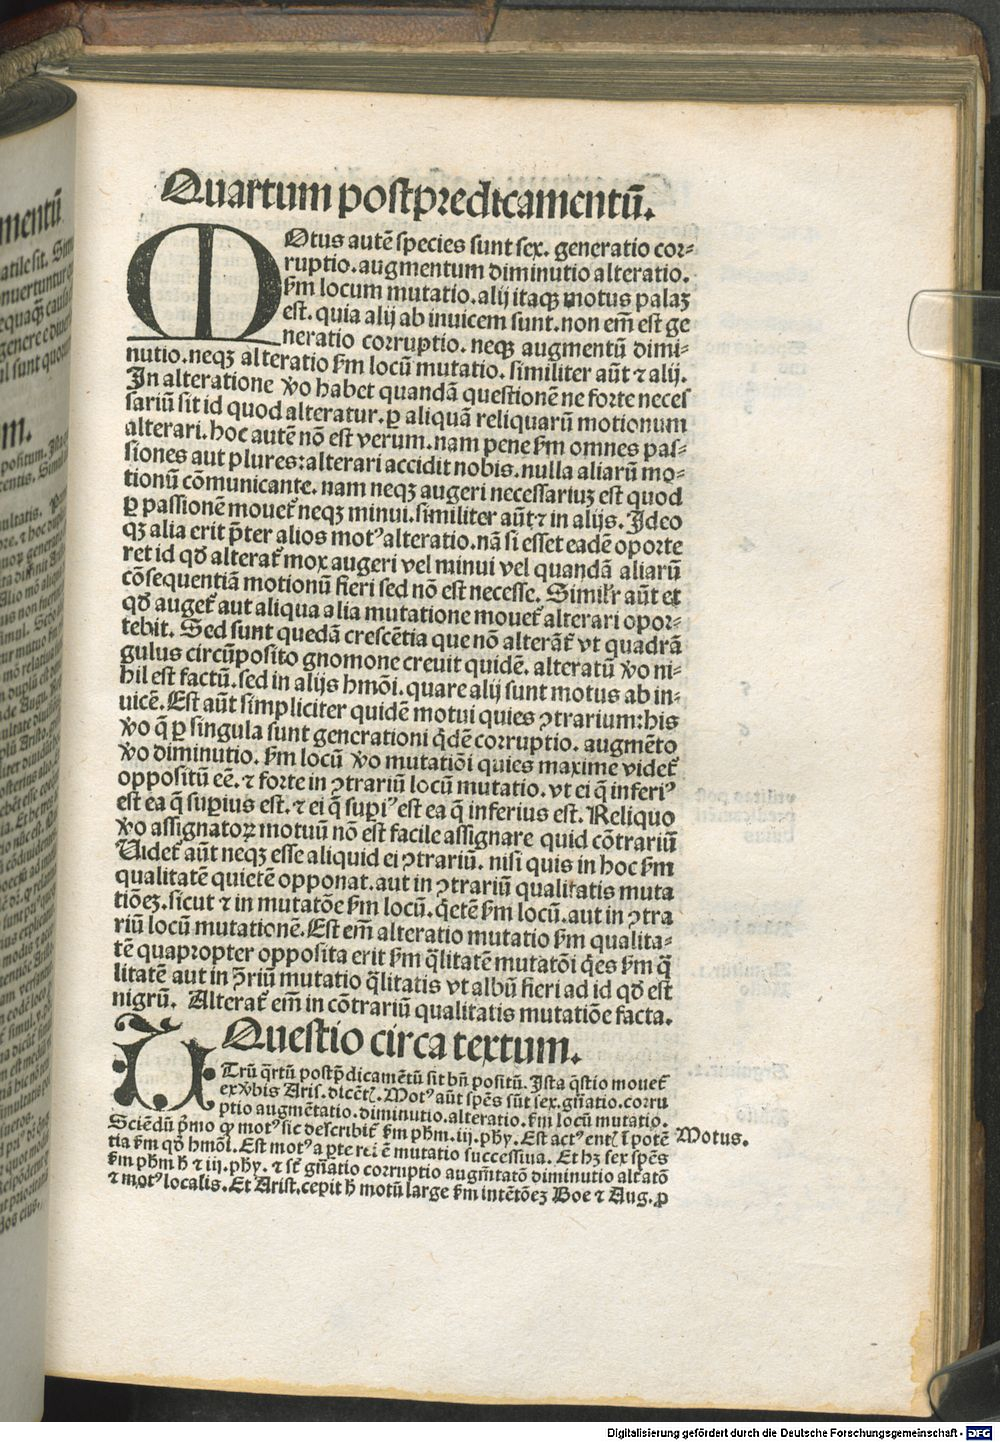 Quartum postpredicamentū.
MOtus autē species sunt sex. generatio cor-
ruptio. augmentum diminutio alteratio.
ẜm locum mutatio. alij itaqꝫ motus palaꝫ
est. quia alij ab inuicem sunt. non em̄ est ge
neratio corruptio. neqꝫ augmentū dimi-
nutio. neqꝫ alteratio ẜm locū mutatio. similiter aūt ⁊ alij.
In alteratione ꝟo habet quandā questionē ne forte neces
sariū sit id quod alteratur. ꝑ aliquā reliquarū motionum
alterari. hoc autē nō est verum. nam pene ẜm omnes pas-
siones aut plures: alterari accidit nobis. nulla aliarū mo-
tionū cōmunicante. nam neqꝫ augeri necessariuꝫ est quod
ꝑ passionē mouet᷑ neqꝫ minui. similiter aūt ⁊ in alijs. Ideo
qꝫ alia erit p̄ter alios motꝰ alteratio. nā si esset eadē oporte
ret id qd̄ alterat᷑ mox augeri vel minui vel quandā aliarū
cōsequentiā motionū fieri sed nō est necesse. Simil'r aūt et
qd̄ auget᷑ aut aliqua alia mutatione mouet᷑ alterari opor-
tebit. Sed sunt quedā crescētia que nō alterāt᷑ vt quadrā
gulus circūposito gnomone creuit quidē. alteratū ꝟo ni-
hil est factū. sed in alijs hmōi. quare alij sunt motus ab in-
uicē. Est aūt simpliciter quidē motui quies ꝯtrarium: his
ꝟo q̄ ꝑ singula sunt generationi q̇dē corruptio. augmēto
ꝟo diminutio. ẜm locū ꝟo mutatiōi quies maxime videt᷑
oppositū eē. ⁊ forte in ꝯtrariū locū mutatio. vt ei q̄ inferiꝰ
est ea q̄ suꝑius est. ⁊ ei q̄ suꝑiꝰ est ea q̄ inferius est. Reliquo
ꝟo assignatoꝝ motuū nō est facile assignare quid cōtrariū
Videt᷑ aūt neqꝫ esse aliquid ei ꝯtrariū. nisi quis in hoc ẜm
qualitatē quietē opponat. aut in ꝯtrariū qualitatis muta
tiōeꝫ. sicut ⁊ in mutatōe ẜm locū. q̇etē ẜm locū. aut in ꝯtra
riū locū mutationē. Est em̄ alteratio mutatio ẜm qualita-
tē quapropter opposita erit ẜm q̄litatē mutatōi q̇es ẜm q̄
litatē aut in ꝯ̄riū mutatio q̄litatis vt albū fieri ad id qd̄ est
nigrū. Alterat᷑ em̄ in cōtrariū qualitatis mutatiōe facta.
Questio circa textum.
UTrū q̄rtū postp̄dicamētū sit bn̄ positū. Ista q̄stio mouet᷑
ex ꝟbis Aris. dicētꝭ. Motꝰ aūt sp̄es sūt sex. gn̄atio. corru
ptio augmētatio. diminutio. alteratio. ẜm locū mutatio.
Sciēdū p̄mo ꝙ motꝰ sic describit᷑ ẜm phm̄. iij. phy. Est actꝰ entꝭ ī potē
tia ẜm qd̄ hmōi. Est motꝰ a ꝑte rei ē mutatio successiua. Et hꝫ sex sp̄es
ẜm phm̄ h̄ ⁊ iij. phy. ⁊ st̄ gn̄atio corruptio augm̄tatō diminutio alt̓atō
⁊ motꝰ localis. Et Arist. cepit h̄ motū large ẜm intētōeꝫ Boe ⁊ Aug. ꝓ
Motus.
Digitalisierung gefördert durch die Deutsche Forschungsgemeinschaft - DFG